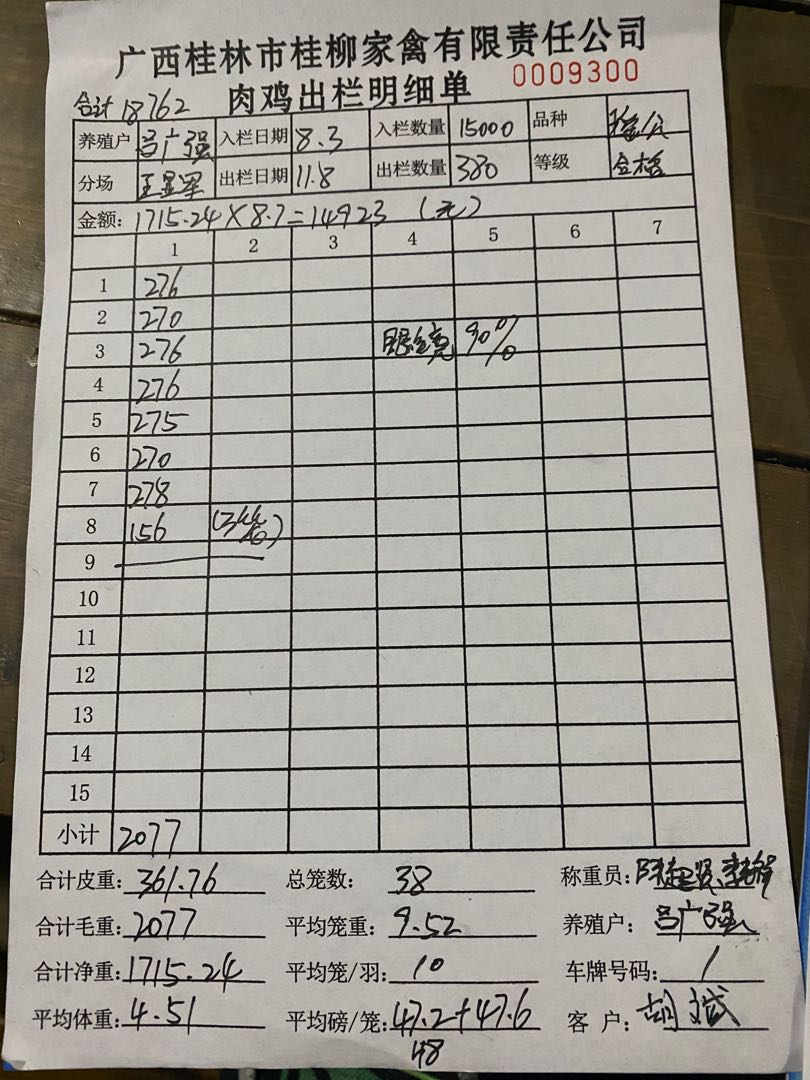 广西桂林市桂柳家禽有限责任公司
肉鸡出栏明细单 0009300
合计18762
养殖户 吕广强 入栏日期 8.3 入栏数量 15000 品种
分场 王显军 出栏日期 11.8 出栏数量 380 等级 合格
金额: 1715.24×8.7=14923 (元)
1 2 3 4 5 6 7
1 276
2 270
3 276 90%
4 276
5 275
6 270
7 278
8 156
9
10
11
12
13
14
15
小计 2077
合计皮重: 361.76 总笼数: 38 称重员:
合计毛重: 2077 平均笼重: 9.52 养殖户: 吕广强
合计净重: 1715.24 平均笼/羽: 10 车牌号码: 1
平均体重: 4.51 平均磅/笼: 47.2+47.6 客 户: 胡斌
48